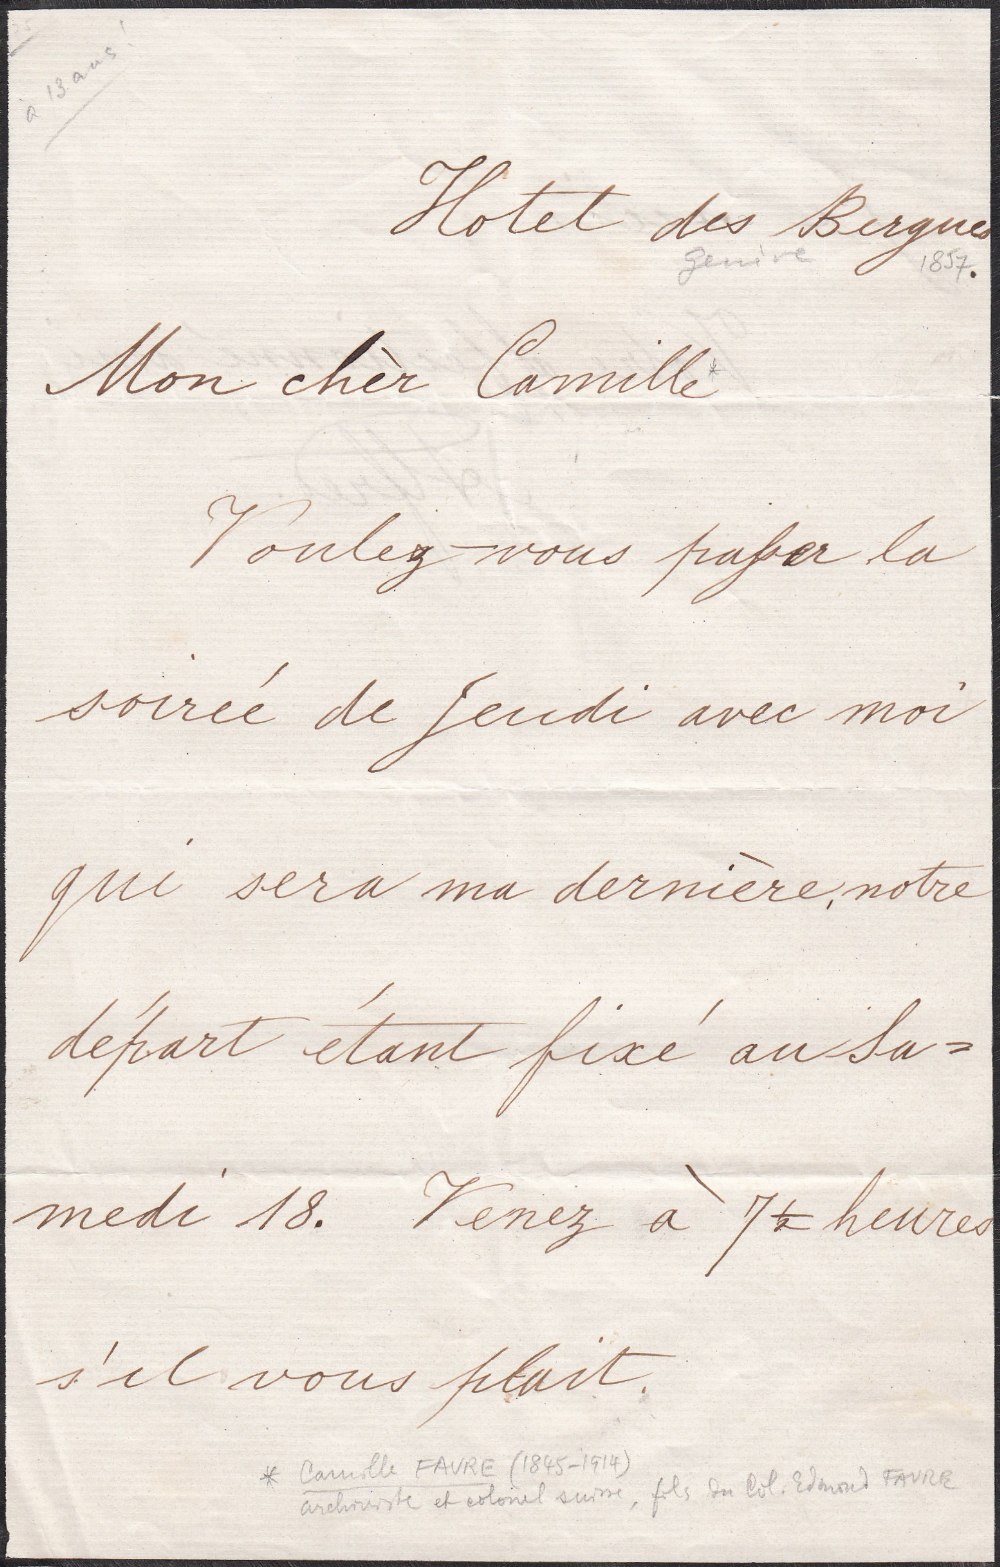 à 13 ans!
Hotel des Bergues
Genève 1857.
Mon chèr Camille*
Voulez-vous passer la
soireé de Jeudi avec moi
qui sera ma dernière, notre
départ étant fixé au Sa=
medi 18. Venez à 7 1/2 heures
s'il vous plait.
* Camille FAVRE (1845-1914)
archiviste et colonel suisse, fils du Col. Edmond FAVRE